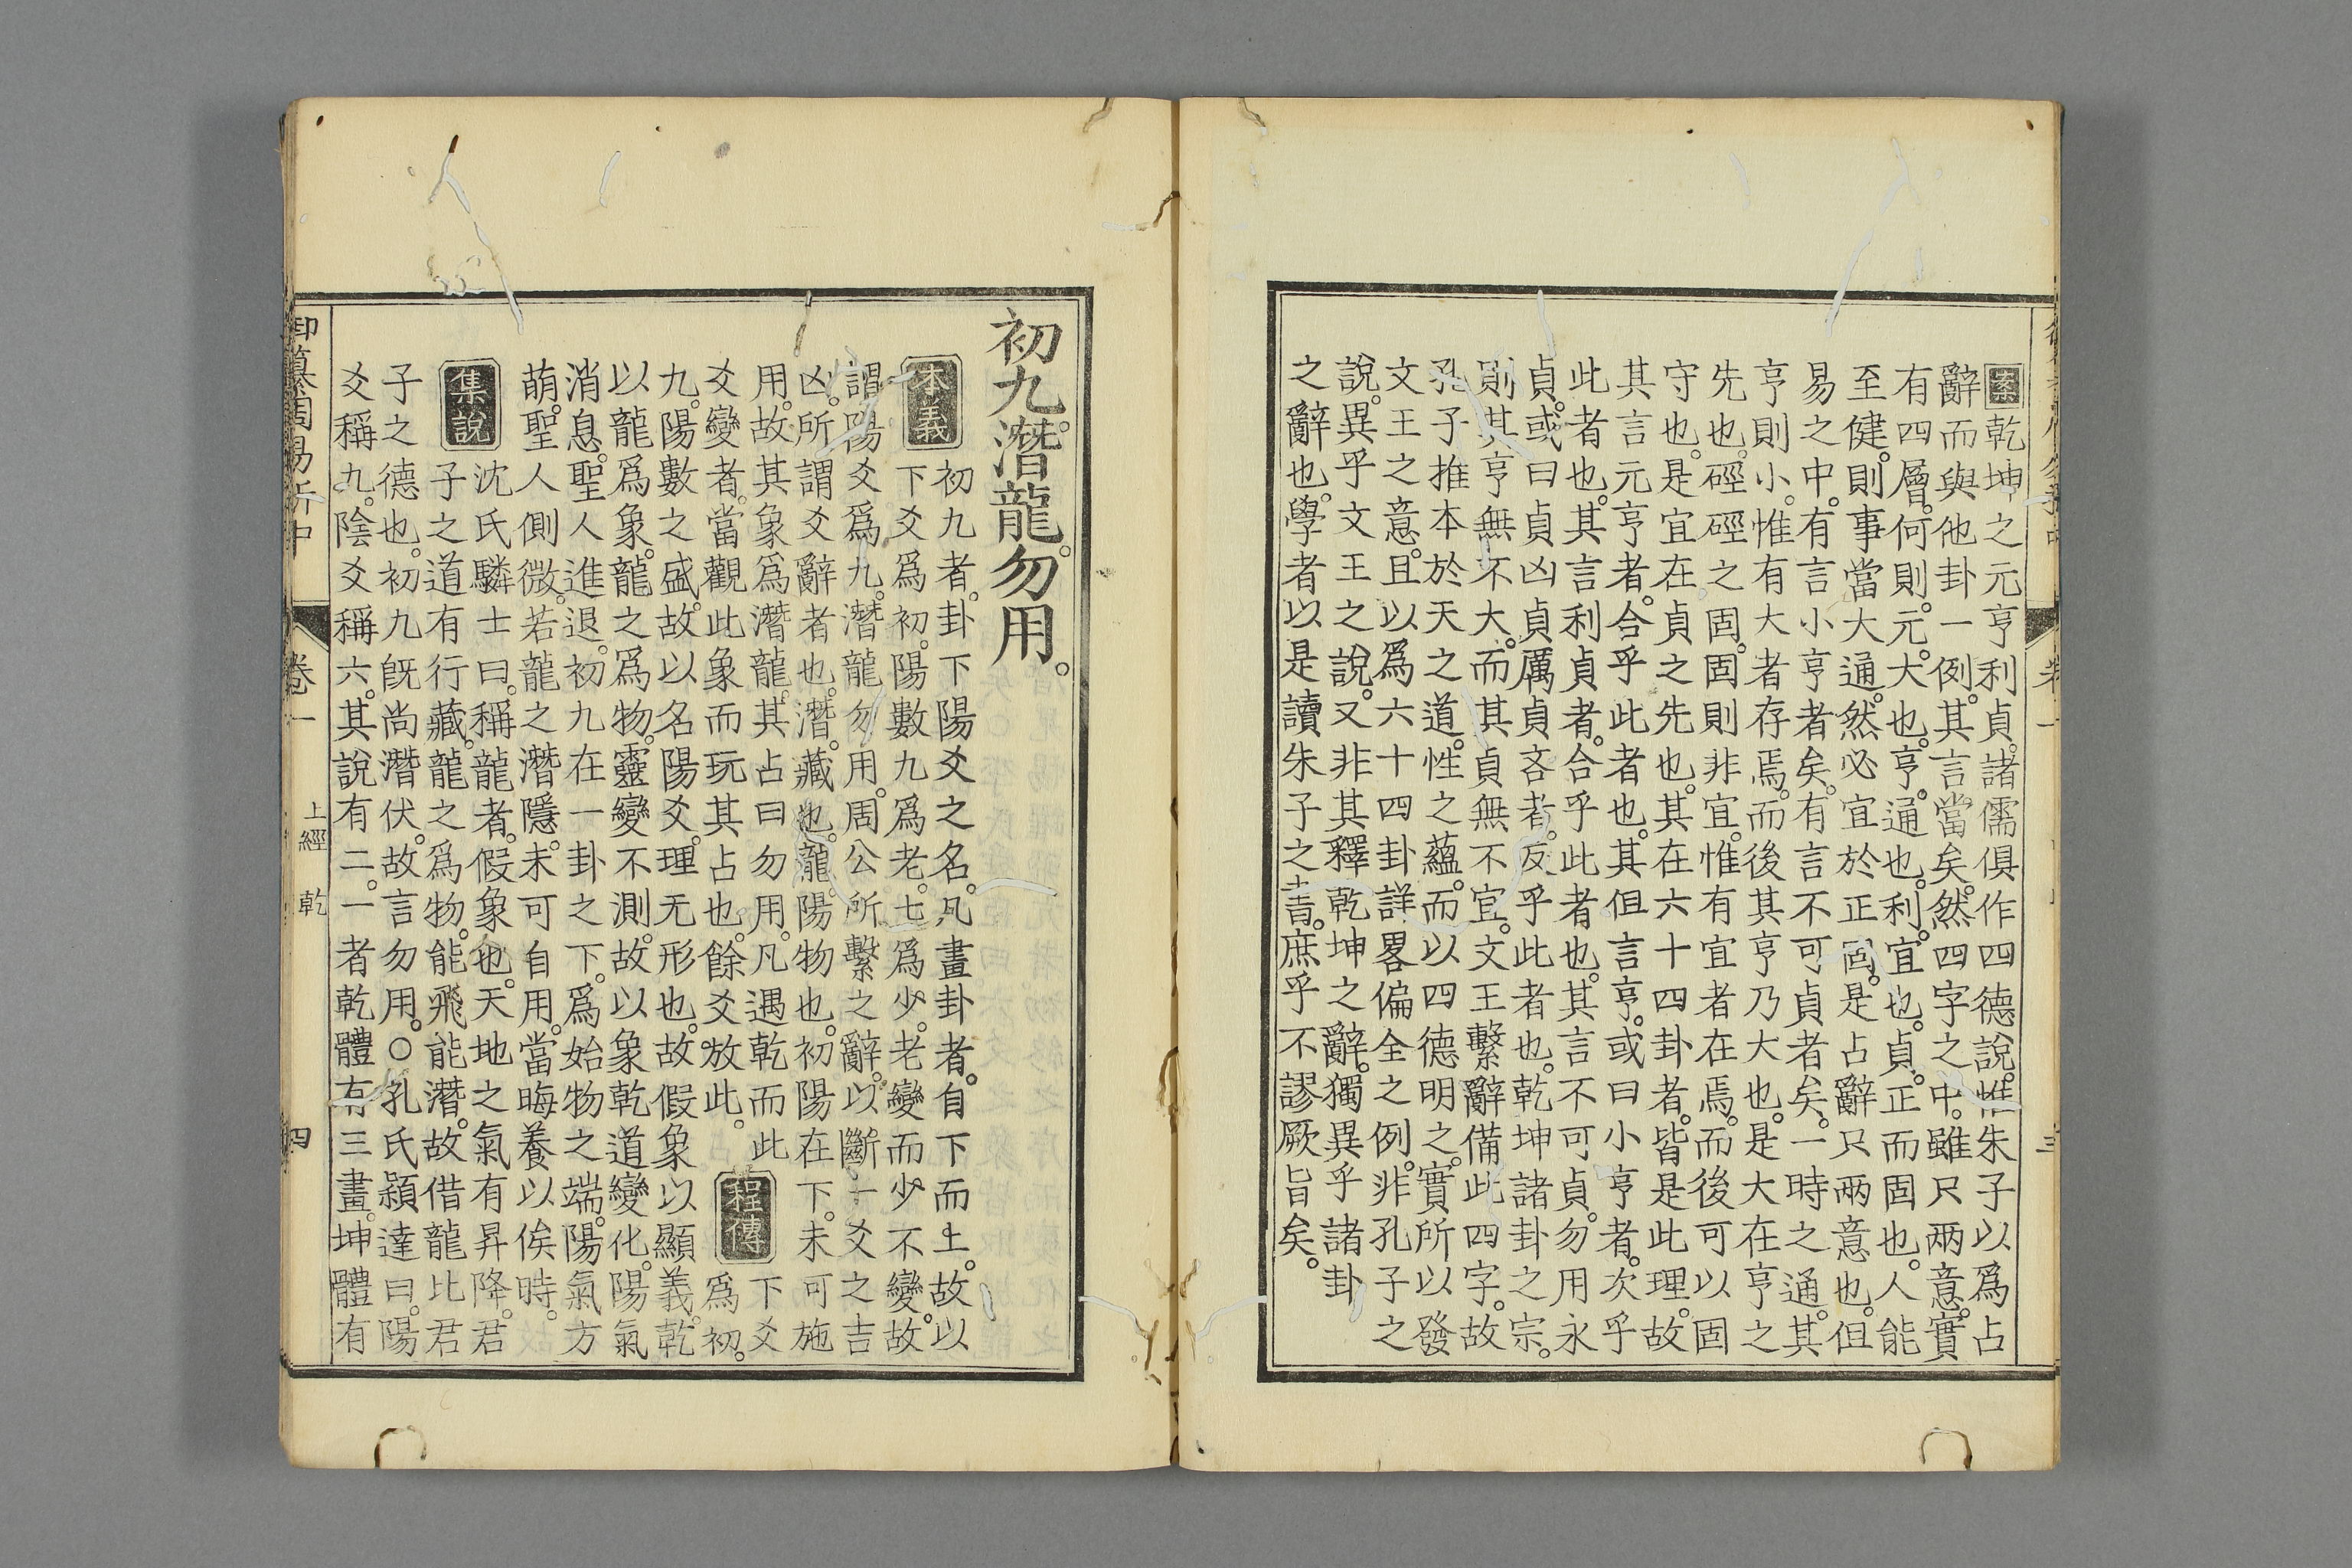 案乾坤之元亨利貞。諸儒俱作四德說。惟朱子以爲占
辭而與他卦一例。其言當矣。然四字之中。雖只兩意。實
有四層。何則。元。大也。亨。通也。利。宜也。貞。正而固也。人能
至健。則事當大通。然必宜於正固。是占辭只兩意也。但
易之中。有言小亨者矣。有言不可貞者矣。一時之通。其
亨則小。惟有大者存焉。而後其亨乃大也。是大在亨之
先也。硜硜之固。固則非宜。惟有宜者在焉。而後可以固
守也。是宜在貞之先也。其在六十四卦者。皆是此理。故
其言元亨者。合乎此者也。其但言亨。或曰小亨者。次乎
此者也。其言利貞者。合乎此者也。其言不可貞。勿用永
貞。或曰貞凶貞厲貞吝者。反乎此者也。乾坤諸卦之宗。
則其亨無不大。而其貞無不宜。文王繫辭備此四字。故
孔子推本於天之道。性之蘊。而以四德明之。實所以發
文王之意。且以爲六十四卦詳畧偏全之例。非孔子之
說。異乎文王之說。又非其釋乾坤之辭。獨異乎諸卦
之辭也。學者以是讀朱子之書。庶乎不謬厥旨矣。
卷一
三
初九。潛龍。勿用。
本義
初九者。卦下陽爻之名。凡畫卦者。自下而上。故以
下爻爲初。陽數九爲老。七爲少。老變而少不變。故
謂陽爻爲九。潛龍勿用。周公所繫之辭。以斷一爻之吉
凶。所謂爻辭者也。潛。藏也。龍。陽物也。初陽在下。未可施
用。故其象爲潛龍。其占曰勿用。凡遇乾而此
爻變者。當觀此象而玩其占也。餘爻放此。
程傳
下爻
爲初。
九。陽數之盛。故以名陽爻。理无形也。故假象以顯義。乾
以龍爲象。龍之爲物。靈變不測。故以象乾道變化。陽氣
消息。聖人進退。初九在一卦之下。爲始物之端。陽氣方
萌。聖人側微。若龍之潛隱。未可自用。當晦養以俟時。
集說
沈氏驎士曰。稱龍者。假象也。天地之氣有昇降。君
子之道有行藏。龍之爲物。能飛能潛。故借龍比君
子之德也。初九旣尚潛伏。故言勿用。○孔氏穎達曰。陽
爻稱九。陰爻稱六。其說有二。一者乾體有三畫。坤體有
御纂周易折中
卷一
上經
乾
四